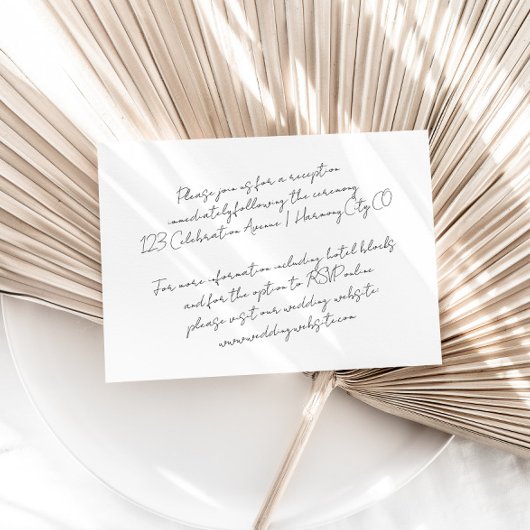 Please join us for a reception
immediately following the ceremony
123 Celebration Avenue | Harmony City CO
For more information including hotel blocks
and for the option to RSVP online
please visit our wedding website:
www.weddingwebsite.com